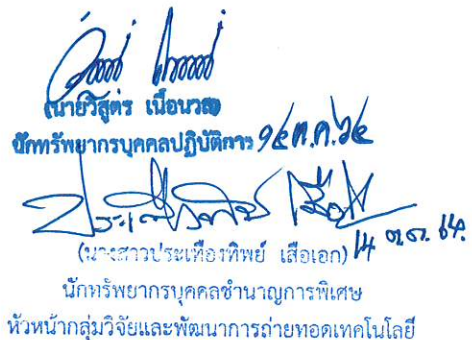 (นายวิสูตร เนื่องนวล)
นักทรัพยากรบุคคลปฏิบัติการ ๑๔ ต.ค. ๖๔
(นางสาวประเทืองทิพย์ เสือเอก) 14 ต.ค. 64.
นักทรัพยากรบุคคลชำนาญการพิเศษ
หัวหน้ากลุ่มวิจัยและพัฒนาการถ่ายทอดเทคโนโลยี